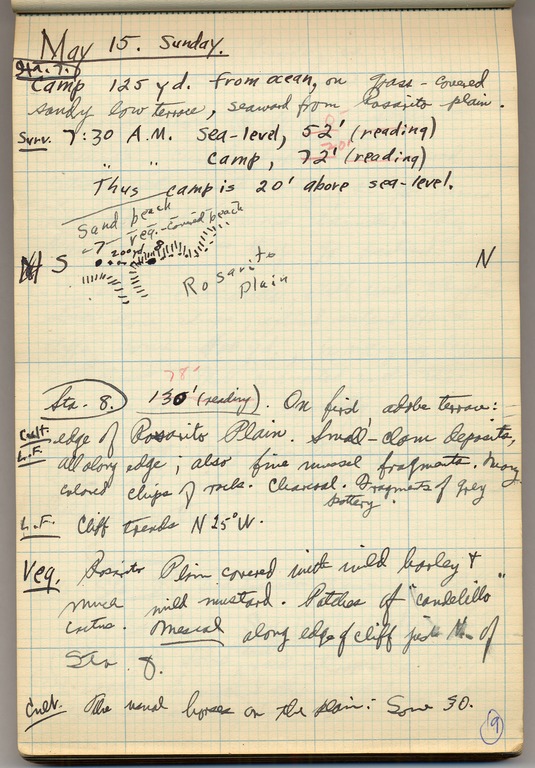 May 15. Sunday.
Sta. 7.
Camp 125 yd. from ocean, on grass-covered
sandy low terrace, seaward from Rosarito plain.
Surv. 7:30 A.M. sea-level, 52' (reading)
0
" " camp, 72' (reading)
20'
Thus camp is 20' above sea-level.
Sand beach
7 veg.-covered beach
200 yd 8
S Rosarito N
Plain
78'
Sta. 8. 130' (reading). On first adobe terrace:
Cult. edge of Rosarito Plain. Small-clam deposits,
L.F. all along edge; also fine mussel fragments. Many
colored chips of rock. Charcoal. Fragments of grey
pottery.
L.F. Cliff trends N 25° W.
Veg. Rosarito Plain covered with wild barley +
much wild mustard. Patches of "candelillo"
cactus. Mescal along edge of cliff just N. of
Sta 8.
Cult. The usual horses on the plain: Some 30.
9